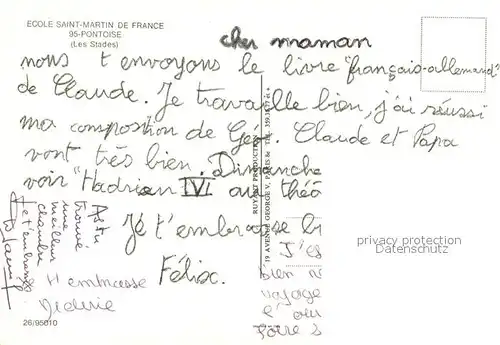 ECOLE SAINT-MARTIN DE FRANCE
95-PONTOISE
(Les Stades)
cher maman
nous t envoyons le livre "français-allemand"
de Claude. Je travaille bien, j'ai réussi
ma composition de Géo. Claude et Papa
vont très bien. Dimanche
voir "Hadrien IV" au théâ
Je t'embrasse bi
Félix.
As tu
trouvé
une
meilleur
chambre
je t'embrasse
J'es
bien
voyage
l'
faire s
RUYANT PRODUCTION
19 AVENUE GEORGE V, PARIS 8e
privacy protection
Datenschutz
26/95010